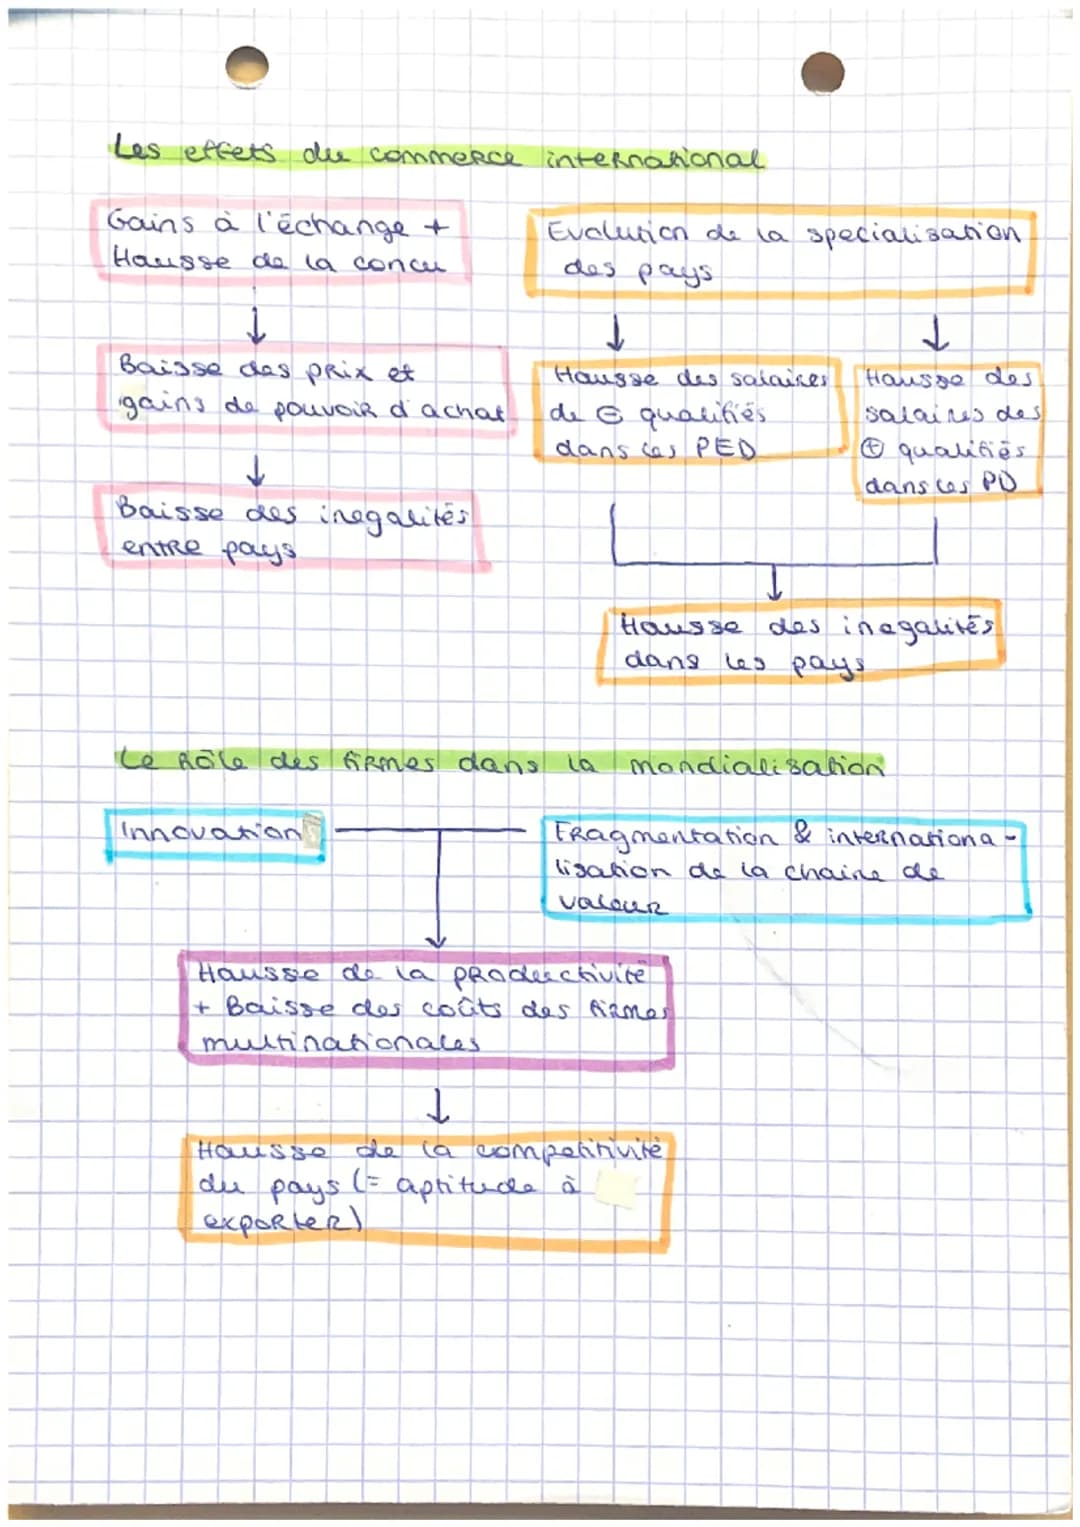 Les effets du commerce international
Gains à l'échange +
Hausse de la concu
Baisse des prix et
gains de pouvoir d'achat
Baisse des inegalités
entre pays
Evolution de la specialisation
des pays
Hausse des salaires
de ⊖ qualifiés
dans les PED
Hausse des
salaires des
⊕ qualifiés
dans les PD
Hausse des inegalités
dans les pays
Le rôle des firmes dans la mondialisation
Innovation
Fragmentation & internationa-
lisation de la chaine de
valeur
Hausse de la productivité
+ Baisse des coûts des firmes
multinationales
Hausse de la competitivité
du pays (= aptitude à
exporter)